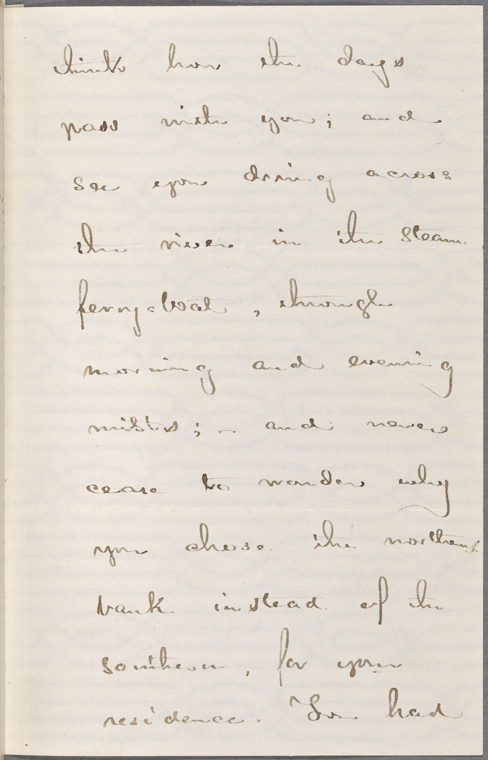 think how the days
pass with you; and
see you driving across
the river in the steam
ferry-boat, through
morning and evening
mists; - and never
cease to wonder why
you chose the northern
bank instead of the
southern, for your
residence. You had